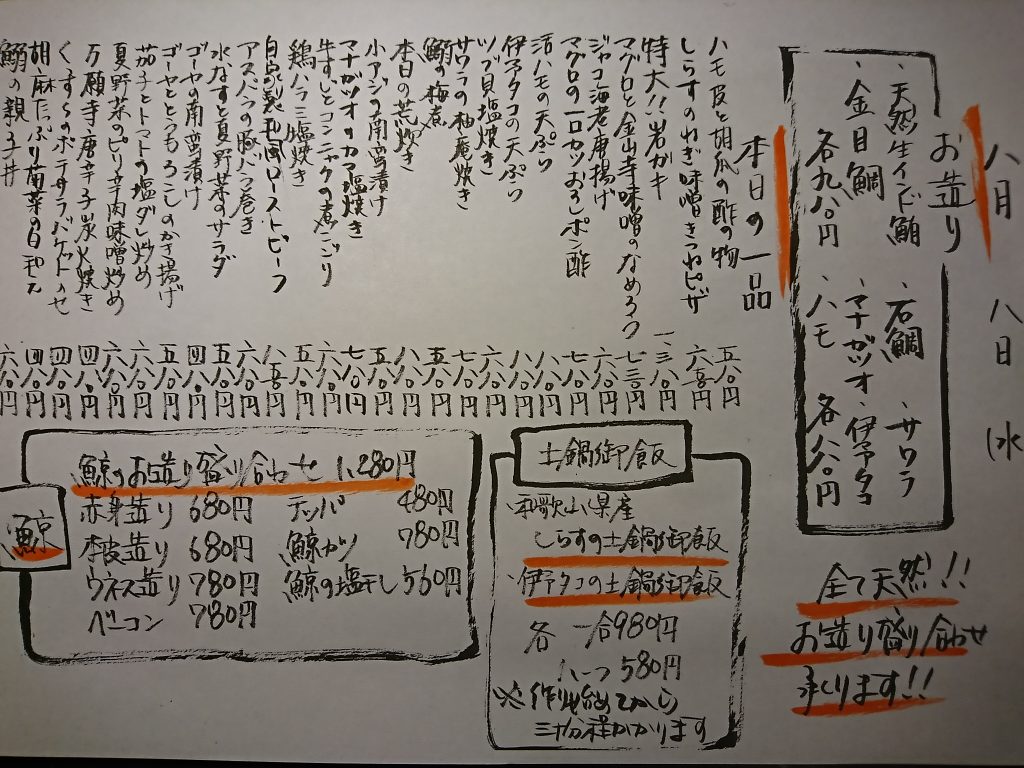 八月八日(水
お造り
・天然生インド鮪 ・石鯛 ・サワラ
・金目鯛 ・マナガツオ ・伊予タコ
各九八〇円 ・ハモ 各八八〇円
本日の一品
ハモ皮と胡瓜の酢の物 五八〇円
しらすのねぎ味噌きつねピザ 六五〇円
特大!!岩ガキ 一、三八〇円
マグロと金山寺味噌のなめろう 七三〇円
ジャコ海老唐揚げ 六八〇円
マグロの一口カツおろしポン酢 七八〇円
活ハモの天ぷら 八八〇円
伊予タコの天ぷら 八八〇円
ツブ貝塩焼き 六八〇円
サワラの柚庵焼き 七八〇円
鰯の梅煮 五八〇円
本日の荒炊き 八八〇円
小アジの南蛮漬け 五八〇円
マナガツオのカマ塩焼き 七八〇円
牛すじとコンニャクの煮こごり 五八〇円
鶏ハラミ塩焼き 五八〇円
自家製和風ローストビーフ 八五〇円
アスパラの豚バラ巻き 六八〇円
水なすと夏野菜のサラダ 五八〇円
ゴーヤの南蛮漬け 四八〇円
ゴーヤととうもろこしのかき揚げ 五八〇円
茄子とトマトの塩ダレ炒め 六八〇円
夏野菜のピリ辛肉味噌炒め 六八〇円
万願寺唐辛子炭火焼き 四八〇円
くずらのポテサラバケットのせ 四八〇円
胡麻たっぷり青菜の白和え 四八〇円
鰯の親子丼 六八〇円
全て天然!!
お造り盛り合わせ
承ります!!
土鍋御飯
・和歌山県産
しらすの土鍋御飯
・伊予タコの土鍋御飯
各 一合980円
ハーフ580円
※作り始めてから
三十分程かかります
鯨
鯨のお造り盛り合わせ 1,280円
赤身造り 680円 テッパ 480円
本皮造り 680円 鯨カツ 780円
ウネス造り 780円 鯨の塩干し 560円
ベーコン 780円